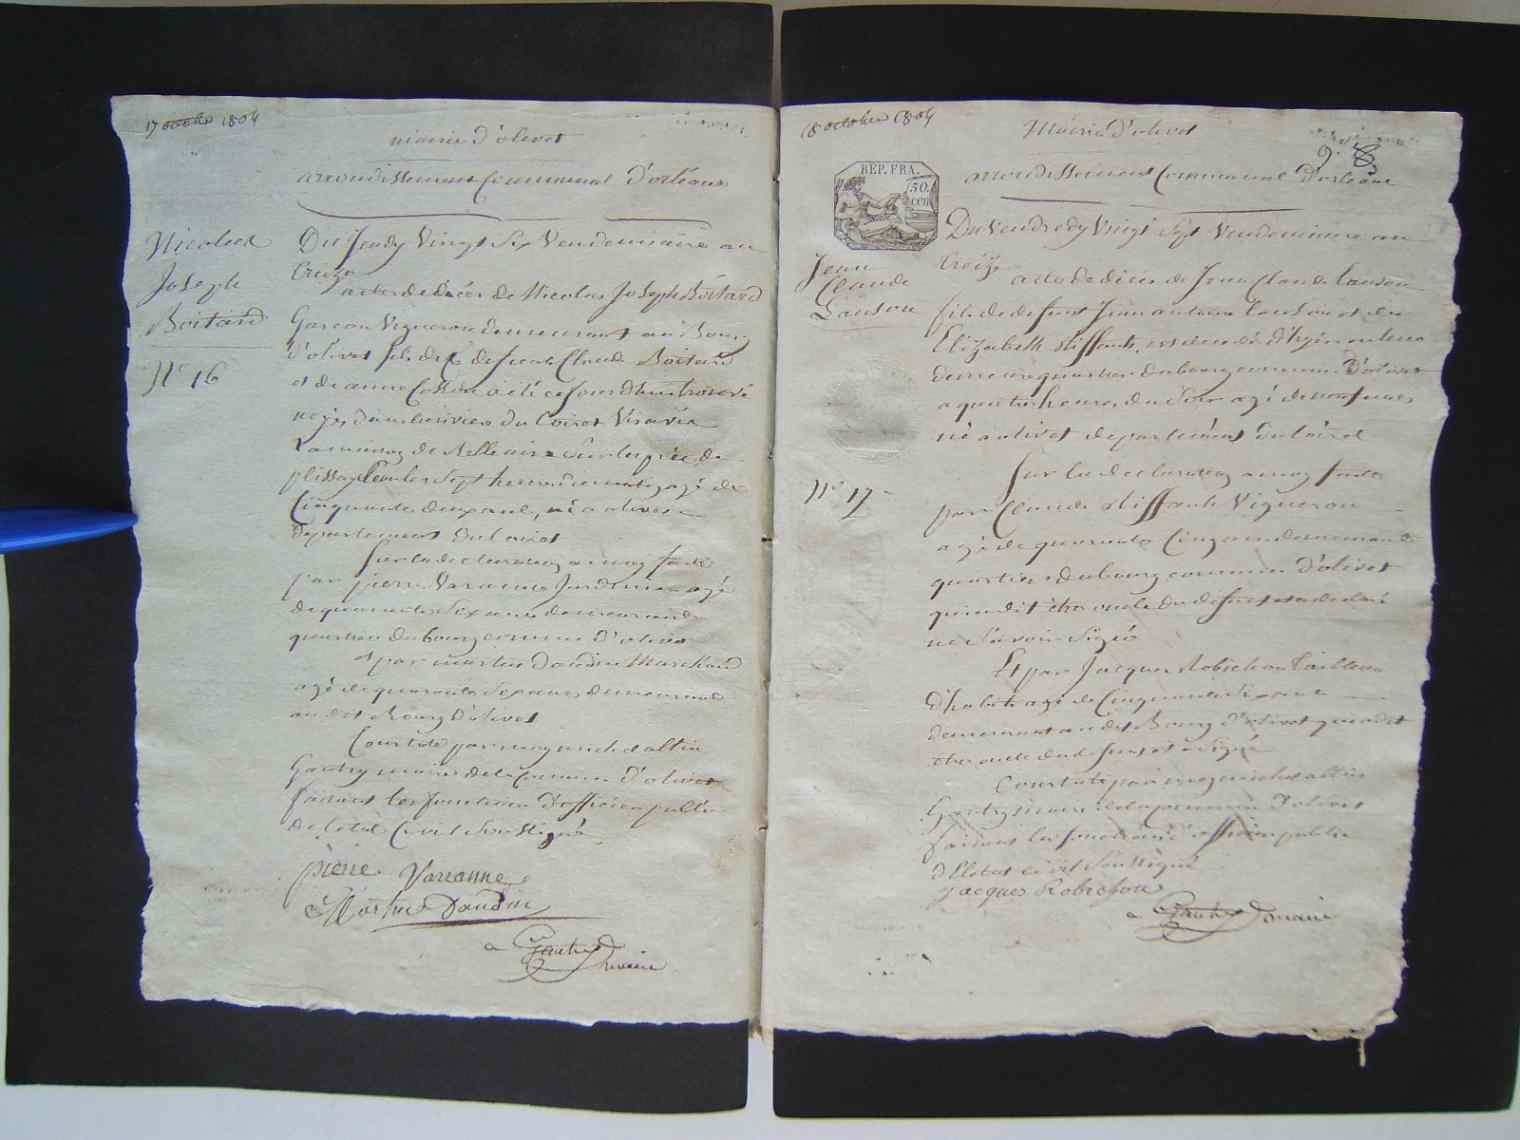 17 octobre 1804
mairie d'olivet
arrondissement Communal d'orléans
Nicolas
Joseph
Boitard
N° 16
Du Jeudy Vingt Six Vendemiaire an
treize
acte de décés de Nicolas Joseph Boitard
Garcon Vigneron demeurant au Bourg
d'olivet fils de feu Claude Boitard
et de anne a été ce jour d'hui trouvé
noyé dans la riviere du Loiret Visavis
de
plissay sept heures du matin agé de
Cinquante deux ans, né a olivet
departement du Loiret
Sur la declaration a moy faite
par pierre Varanne Jardinier agé
de quarante Six ans demeurant
quartier du bourg commune d'olivet
et par martin Daudin Marchand
agé de quarante ans demeurant
au dit Bourg d'olivet
Constaté par moy michel altin
Gautry maire de la Commune d'olivet
faisant les fonctions d'officier public
de l'etat Civil Soussigné
pierre Varanne
Martin Daudin
a Gautry maire
18 octobre 1804
Mairie d'olivet
9. 8
arrondissement Communal d'orléans
REP. FRA.
50.
cen
Jean
Claude
Lanson
N° 17
Du Vendredy Vingt Sept Vendemiaire an
treize
acte de décés de Jean Claude Lanson
fils de defunt Jean antoine Lanson et de
Elizabeth décédé d'hyer
demeure quartier du bourg commune d'olivet
a quatre heures du Soir agé de neuf
né a olivet departement du Loiret
Sur la declaration a moy faite
par Claude Vigneron
agé de quarante Cinq ans demeurant
quartier du bourg commune d'olivet
qui a dit être oncle du defunt et a declaré
ne Savoir Signé
Et par Jacques Robichon tailleur
d'habits agé de Cinquante ans
demeurant au dit Bourg d'olivet qui a dit
etre oncle du defunt et a signé
Constaté par moy michel altin
Gautry maire de la commune d'olivet
faisant les fonctions d'officier public
de l'etat civil Soussigné
Jacques Robichon
a Gautry maire